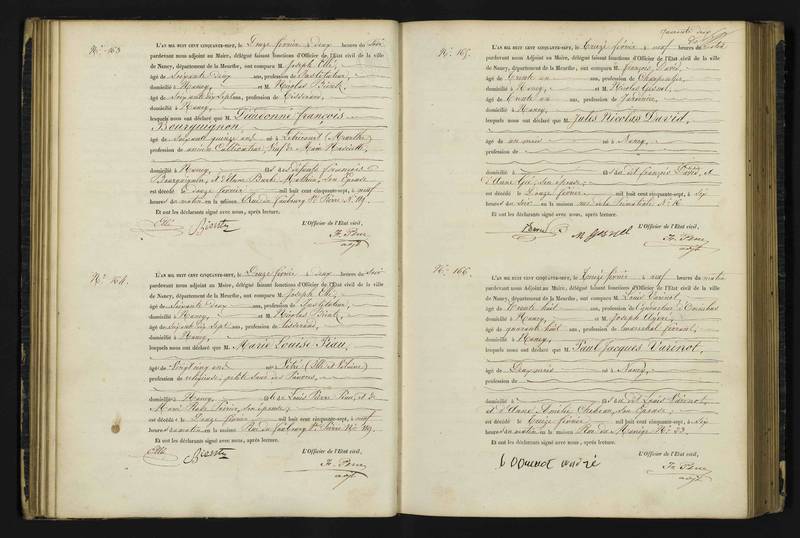 N°. 163
L'AN MIL HUIT CENT CINQUANTE-SEPT, le Douze février à deux heures du soir
pardevant nous adjoint au Maire, délégué faisant fonctions d'Officier de l'Etat civil de la ville
de Nancy, département de la Meurthe, ont comparu M. Joseph Elli,
âgé de Soixante deux ans, profession de Instituteur,
domicilié à Nancy, et M. Nicolas
âgé de Soixante dix sept ans, profession de Tisserand,
domicilié à Nancy,
lesquels nous ont déclaré que M. Dieudonné François
Bourguignon,
âgé de Soixante quinze ans né à (Meurthe)
profession de ancien Cultivateur, Veuf de Marie
domicilié à Nancy, fils de défunts François
Bourguignon, et d' Barbe Mathieu, son épouse
est décédé le Douze février mil huit cent cinquante-sept, à neuf
heures du matin en la maison Rue du Faubourg St Pierre N° 119.
Et ont les déclarants signé avec nous, après lecture.
L'Officier de l'Etat civil,
Elli
adjt
N°. 164.
L'AN MIL HUIT CENT CINQUANTE-SEPT, le Douze février à deux heures du soir
pardevant nous adjoint au Maire, délégué faisant fonctions d'Officier de l'Etat civil de la ville
de Nancy, département de la Meurthe, ont comparu M. Joseph Elli,
âgé de Soixante deux ans, profession de Instituteur,
domicilié à Nancy, et M. Nicolas
âgé de Soixante dix sept ans, profession de Tisserand,
domicilié à Nancy,
lesquels nous ont déclaré que M. Marie Louise Piau,
âgé de Vingt cinq ans née à (Ille et Vilaine)
profession de religieuse, petite Sœur des Pauvres,
domiciliée à Nancy, fille de Louis Pierre Piau, et de
Marie son épouse;
est décédée le Douze février mil huit cent cinquante-sept, à neuf
heures du matin en la maison Rue du Faubourg St Pierre N° 119.
Et ont les déclarants signé avec nous, après lecture.
L'Officier de l'Etat civil,
Elli
adjt
quarante deux
N°. 165.
L'AN MIL HUIT CENT CINQUANTE-SEPT, le Treize février à neuf heures du matin
pardevant nous Adjoint au Maire, délégué faisant fonctions d'Officier de l'Etat civil de la ville
de Nancy, département de la Meurthe, ont comparu M. François David,
âgé de Trente un ans, profession de Charpentier,
domicilié à Nancy, et M. Nicolas
âgé de Trente un ans, profession de Jardinier,
domicilié à Nancy,
lesquels nous ont déclaré que M. Jules Nicolas David,
âgé de un mois né à Nancy,
profession de
domicilié à fils du dit François David, et
d'Anne son épouse;
est décédé le Douze février mil huit cent cinquante-sept, à six
heures du soir en la maison rue de la Primatiale N° 16.
Et ont les déclarants signé avec nous, après lecture.
L'Officier de l'Etat civil,
adjt
N°. 166.
L'AN MIL HUIT CENT CINQUANTE-SEPT, le Treize février à neuf heures du matin
pardevant nous Adjoint au Maire, délégué faisant fonctions d'Officier de l'Etat civil de la ville
de Nancy, département de la Meurthe, ont comparu M. Louis Varinot,
âgé de Trente huit ans, profession de Conducteur d'Omnibus
domicilié à Nancy, et M. Joseph André,
âgé de quarante huit ans, profession de maréchal ferrant,
domicilié à Nancy,
lesquels nous ont déclaré que M. Paul Jacques Varinot,
âgé de Deux mois né à Nancy,
profession de
domicilié à fils du dit Louis Varinot,
et d'Anne Amélie son épouse;
est décédé le Treize février mil huit cent cinquante-sept, à six
heures du matin en la maison Rue du Manège N° 23.
Et ont les déclarants signé avec nous, après lecture.
L'Officier de l'Etat civil,
André
adjt.